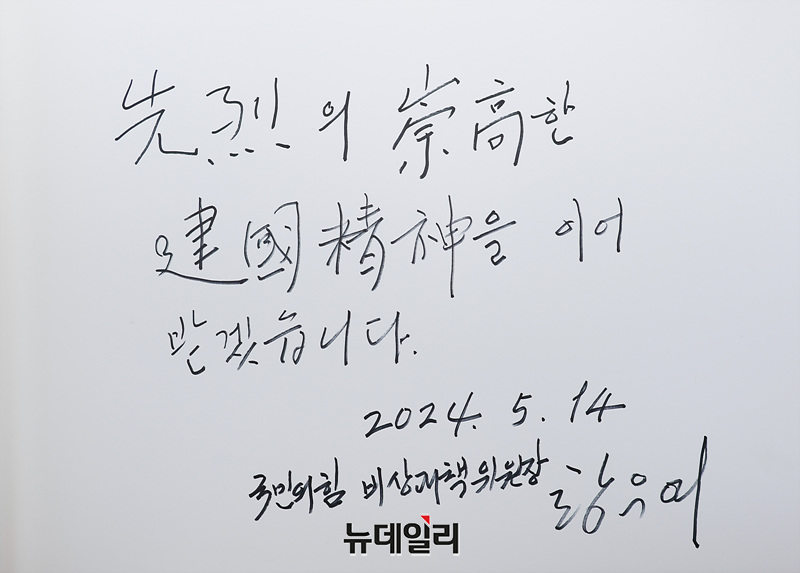 先烈의 崇高한
建國精神을 이어
받겠습니다.
2024. 5. 14
국민의힘 비상대책위원장 황우여
뉴데일리